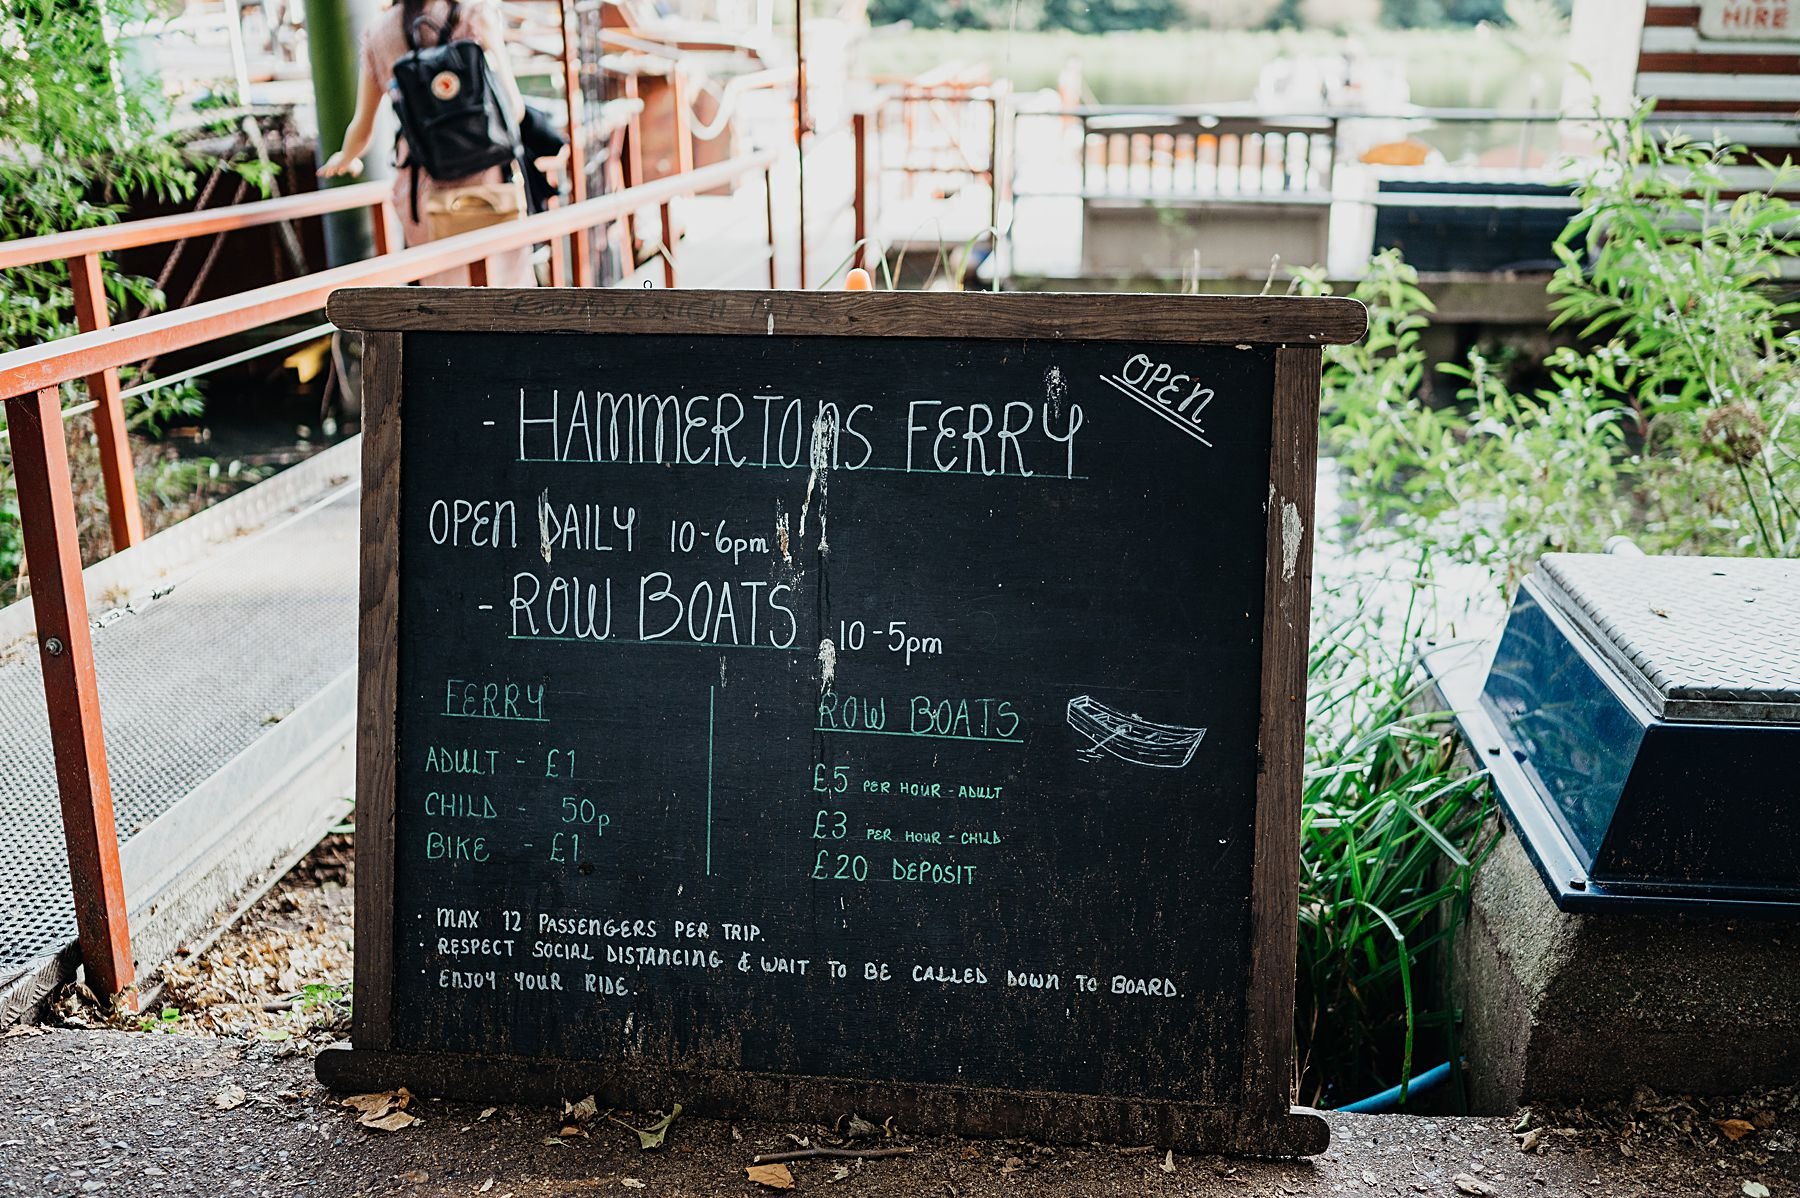 HIRE
OPEN
- HAMMERTONS FERRY
OPEN DAILY 10-6pm
- ROW BOATS 10-5pm
FERRY
ADULT - £1
CHILD - 50p
BIKE - £1
ROW BOATS
£5 PER HOUR - ADULT
£3 PER HOUR - CHILD
£20 DEPOSIT
· MAX 12 PASSENGERS PER TRIP.
· RESPECT SOCIAL DISTANCING & WAIT TO BE CALLED DOWN TO BOARD.
· ENJOY YOUR RIDE.